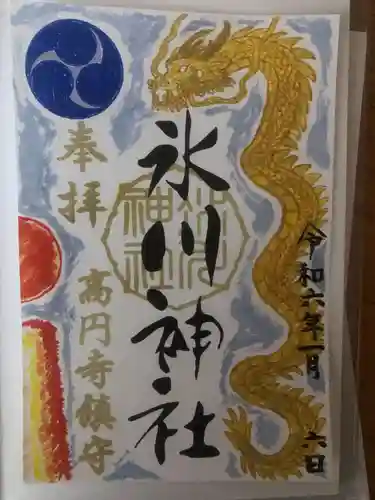 令和六年一月六日
氷川神社
氷川神社
奉拝
高円寺鎮守